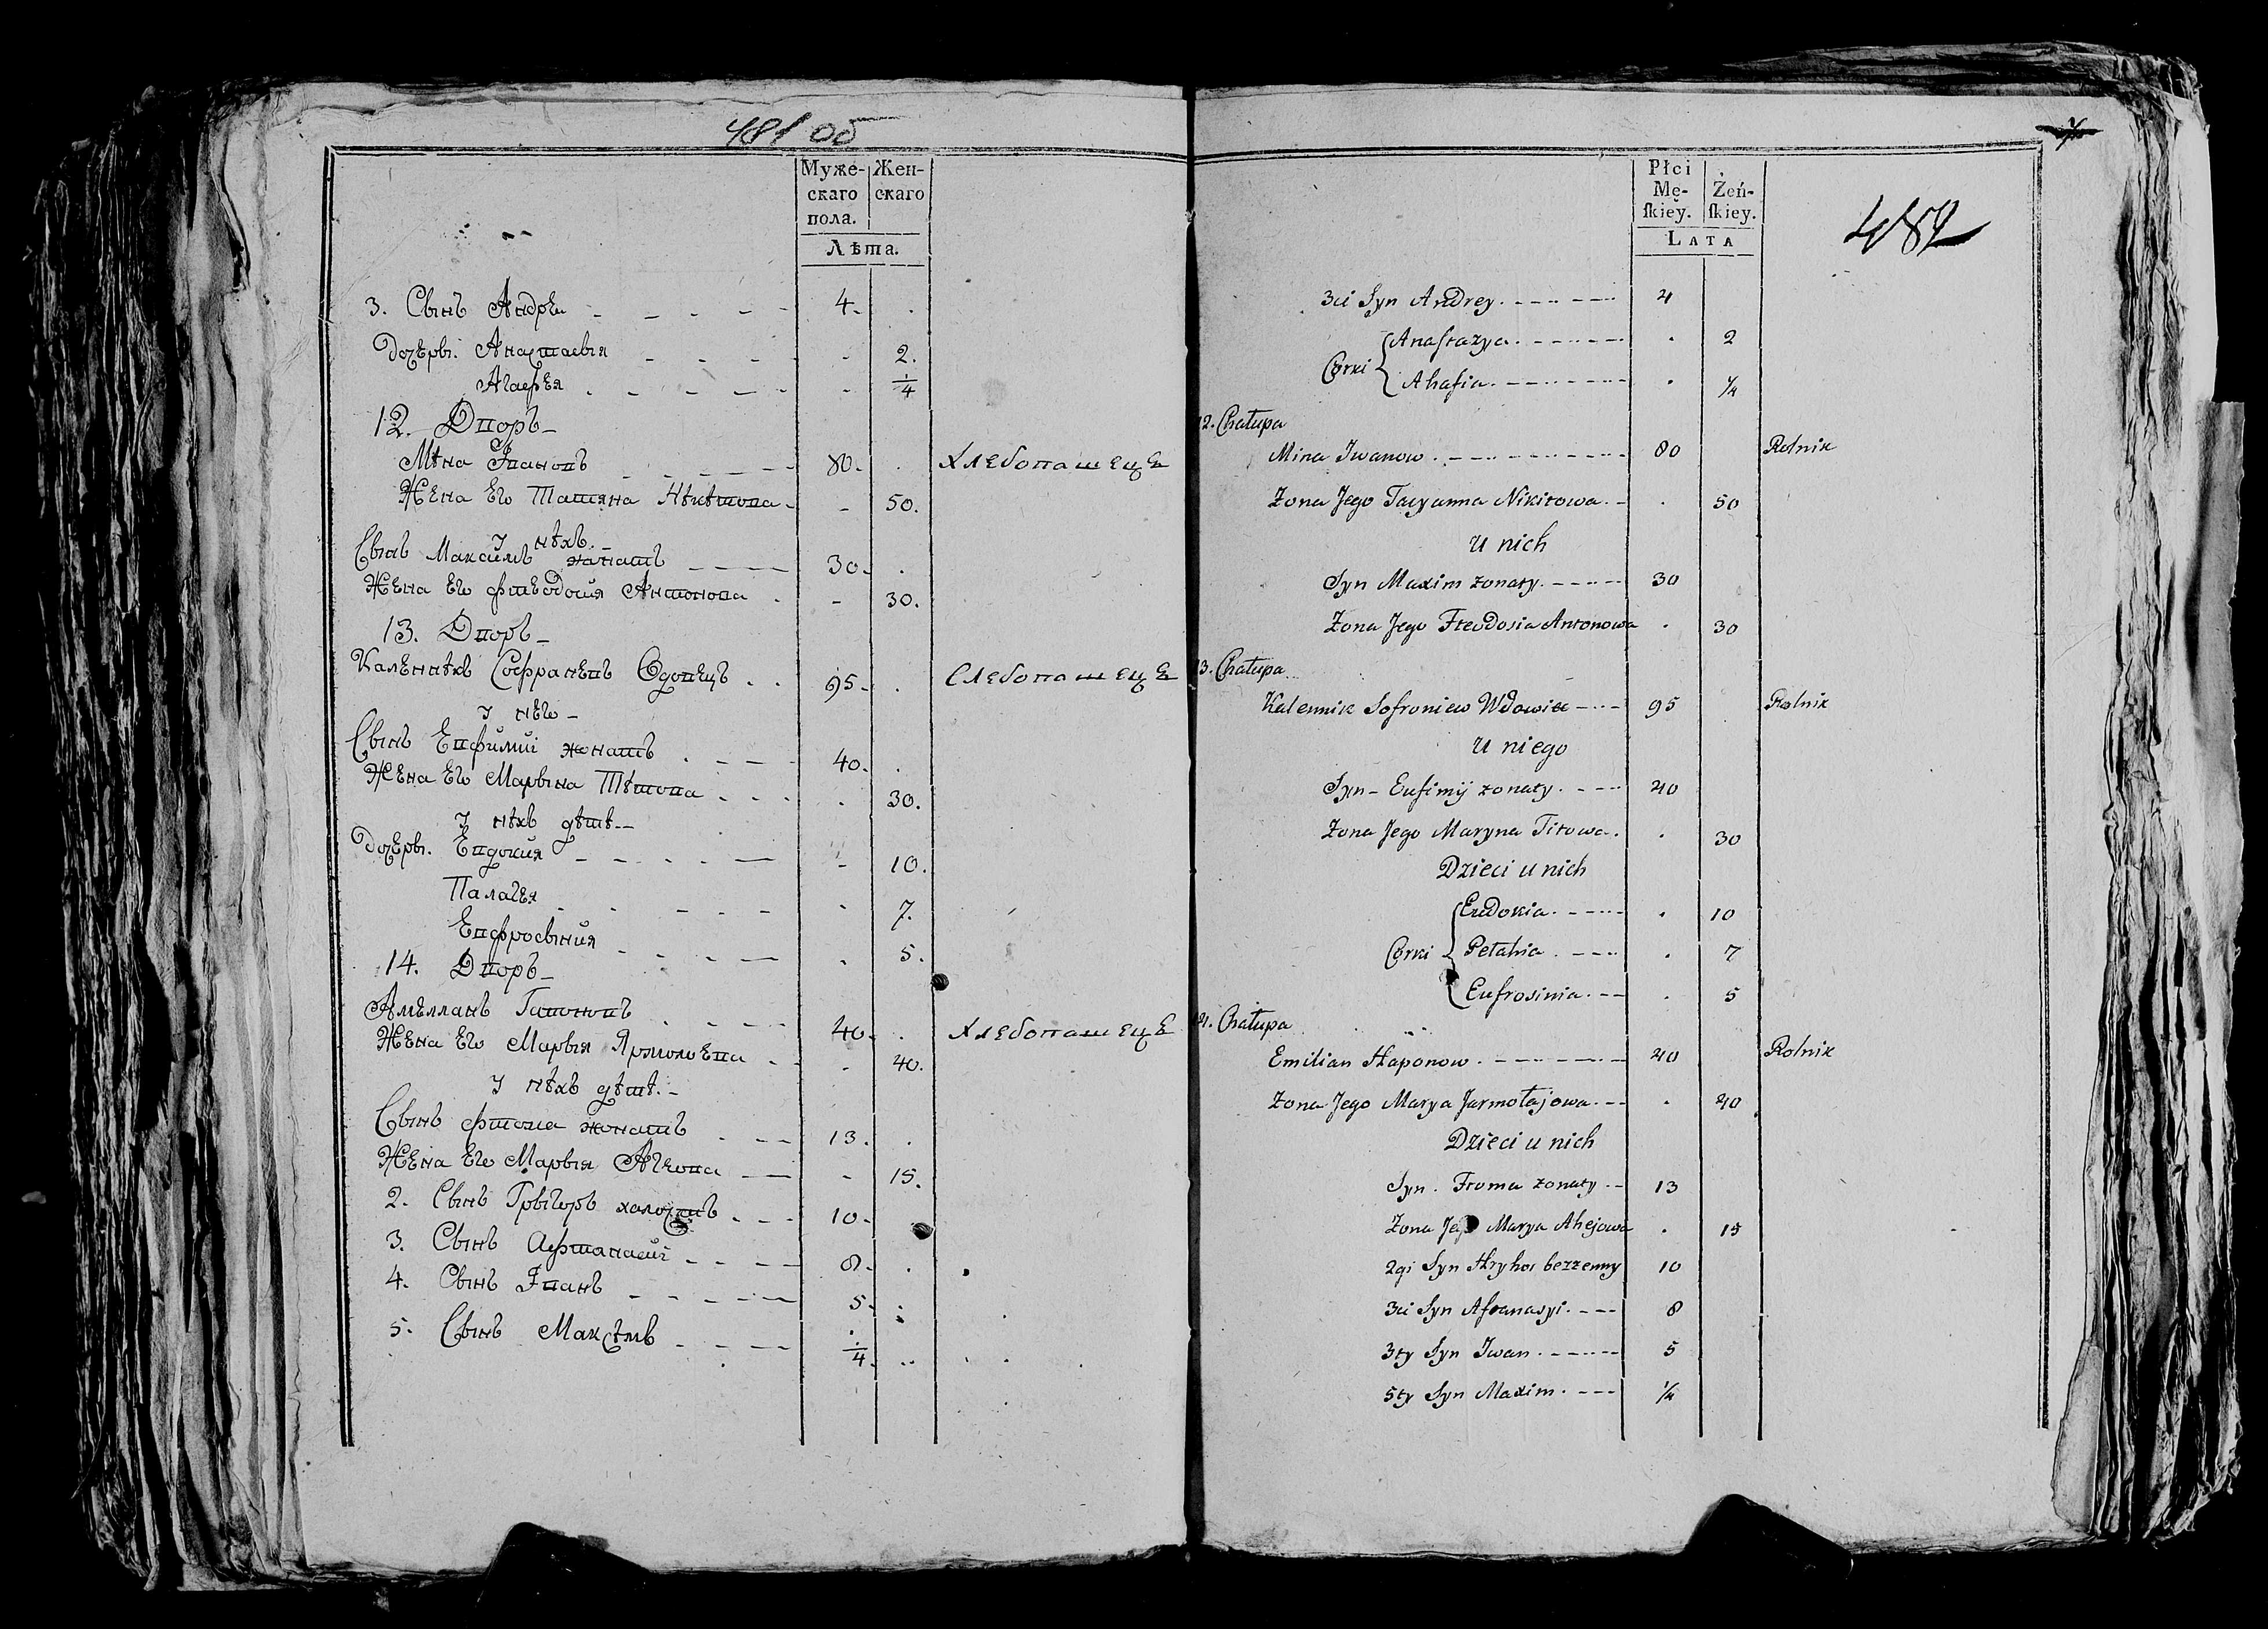 481 об
Муже-
скаго
пола.
Жен-
скаго
Лѣта.
3. Сынъ Андрѣи 4.
Дочеры. Анастасыя 2.
Агафея 1/4
12. Дворъ
Мѣна Івановъ 80. Хлебопашеце
Жена Его Татяна Нѣкѣтова 50.
У нѣхъ
Сынъ Максимъ жанатъ 30.
Жена Его Фтеодосия Антонова 30.
13. Дворъ
Каленѣкъ Софраневъ Вдовецъ 95. Слебопашеце
У него
Сынъ Евфимиі жонатъ 40.
Жена Его Марына Тѣтова 30.
У нѣхъ дѣтѣ
Дочеры. Евдокия 10.
Палагея 7.
Евфросыния 5.
14. Дворъ
Амелланъ Гапоновъ 40. Хлебопашеце
Жена Его Марыя Ярмолаева 40.
У нѣхъ дѣтѣ.
Сынъ Фтома жонатъ 13.
Жена Его Марыя Агеева 15.
2. Сынъ Грыгоръ холостъ 10.
3. Сынъ Афтанасиі 8.
4. Сынъ Іванъ 5.
5. Сынъ Максѣмъ 1/4.
482
Płci
Mę-
ſkiey.
Żeń-
ſkiey.
LATA
3ci Syn Andrey. 4
Anastazya. 2
Corki
Ahafia. 1/4
12. Chałupa
Mina Iwanow. 80 Rolnik
Zona Jego Tacyanna Nikitowa. 50
U nich
Syn Maxim zonaty. 30
Zona Jego Fteodosia Antonowa 30
13. Chałupa
Kalennik Sofroniew Wdowiec 95 Rolnik
U niego
Syn - Eufimij zonaty. 40
Zona Jego Maryna Titowa. 30
Dzieci u nich
Eudokia. 10
Corki Pelahia. 7
Eufrosinia. 5
14. Chałupa
Emilian Haponow. 40 Rolnik
Zona Jego Marya Jarmołajowa. 40
Dzieci u nich
Syn. Ftoma zonaty 13
Zona Jego Marya Ahejowa 15
2gi Syn Hryhor bezzenny 10
3ci Syn Aftanasyi. 8
3ty Syn Iwan. 5
5ty Syn Maxim. 1/4